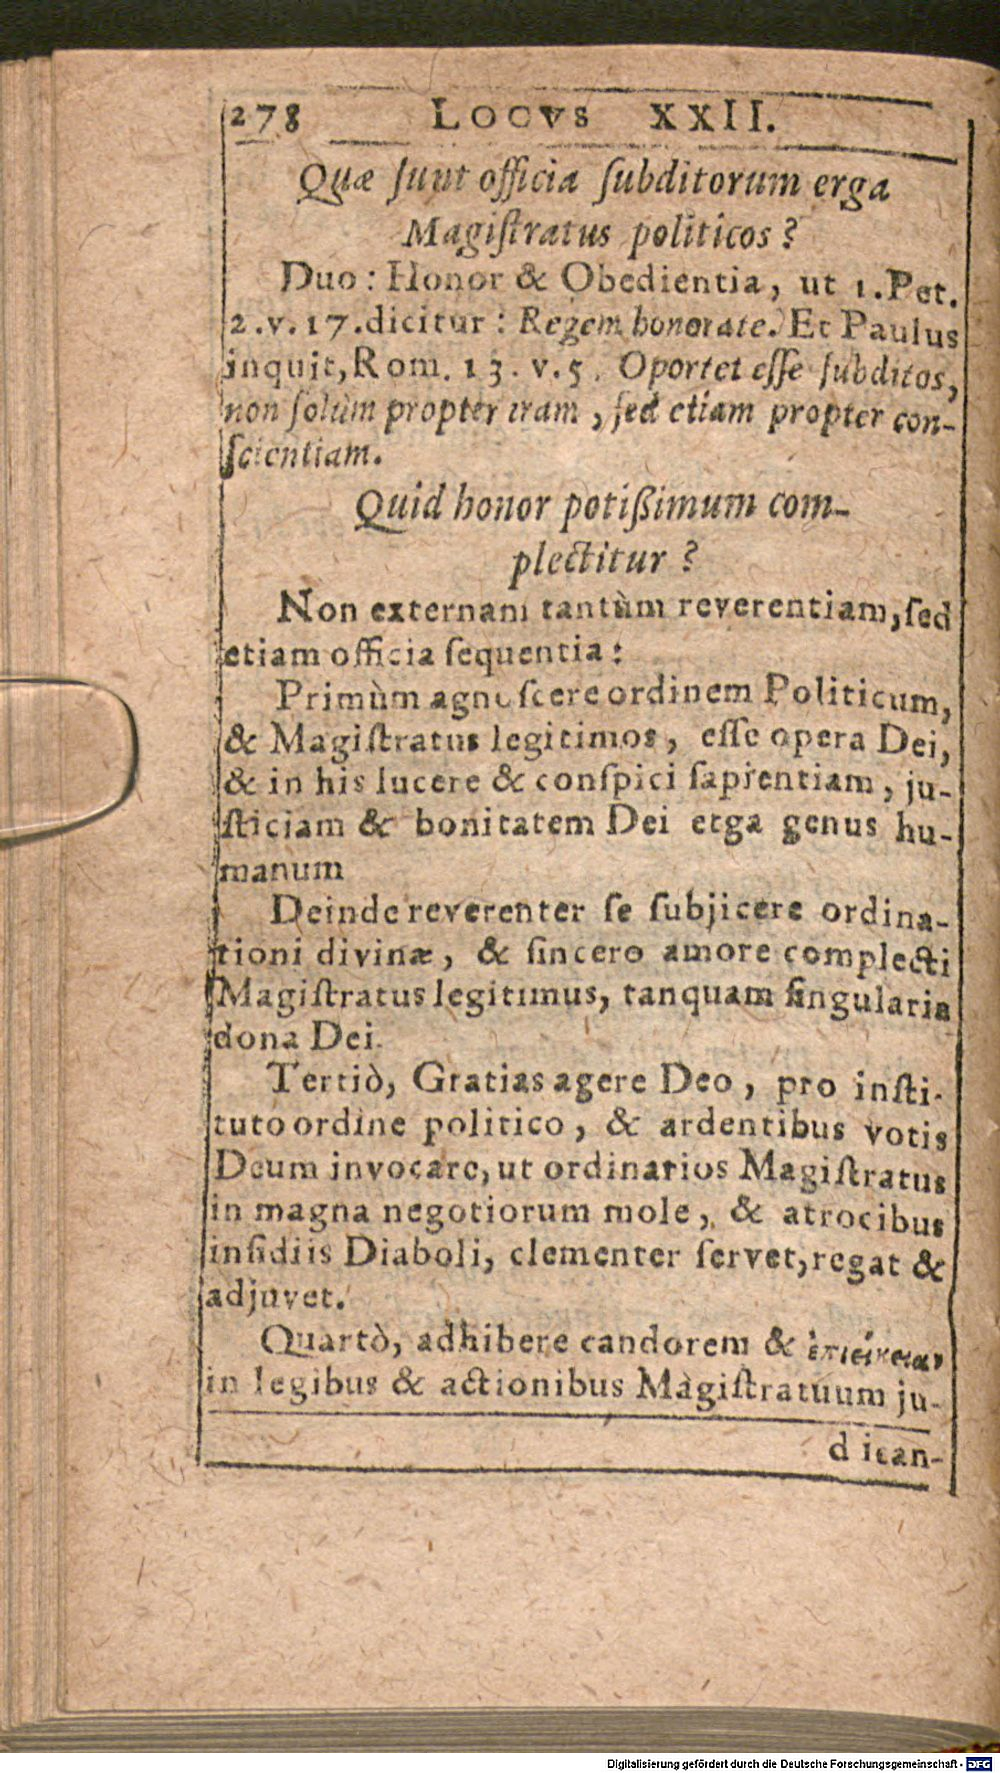 278 LOCVS XXII.
Quæ ſunt officia ſubditorum erga
Magiſtratus politicos?
Duo: Honor & Obedientia, ut 1. Pet.
2. v. 17. dicitur: Regem honorate. Et Paulus
inquit, Rom. 13. v. 5. Oportet eſſe ſubditos,
non ſolùm propter iram, ſed etiam propter con-
ſcientiam.
Quid honor potißimum com-
plectitur?
Non externam tantùm reverentiam, ſed
etiam officia ſequentia:
Primùm agnoſcere ordinem Politicum,
& Magiſtratus legitimos, eſſe opera Dei,
& in his lucere & conſpici ſapientiam, ju-
ſticiam & bonitatem Dei erga genus hu-
manum
Deinde reverenter ſe ſubjicere ordina-
tioni divinæ, & ſincero amore complecti
Magiſtratus legitimus, tanquam ſingularia
dona Dei.
Tertiò, Gratias agere Deo, pro inſti-
tuto ordine politico, & ardentibus votis
Deum invocare, ut ordinarios Magiſtratus
in magna negotiorum mole, & atrocibus
inſidiis Diaboli, clementer ſervet, regat &
adjuvet.
Quartò, adhibere candorem & ἐπιείκειαν
in legibus & actionibus Magiſtratuum ju-
dican-
Digitalisierung gefördert durch die Deutsche Forschungsgemeinschaft - DFG